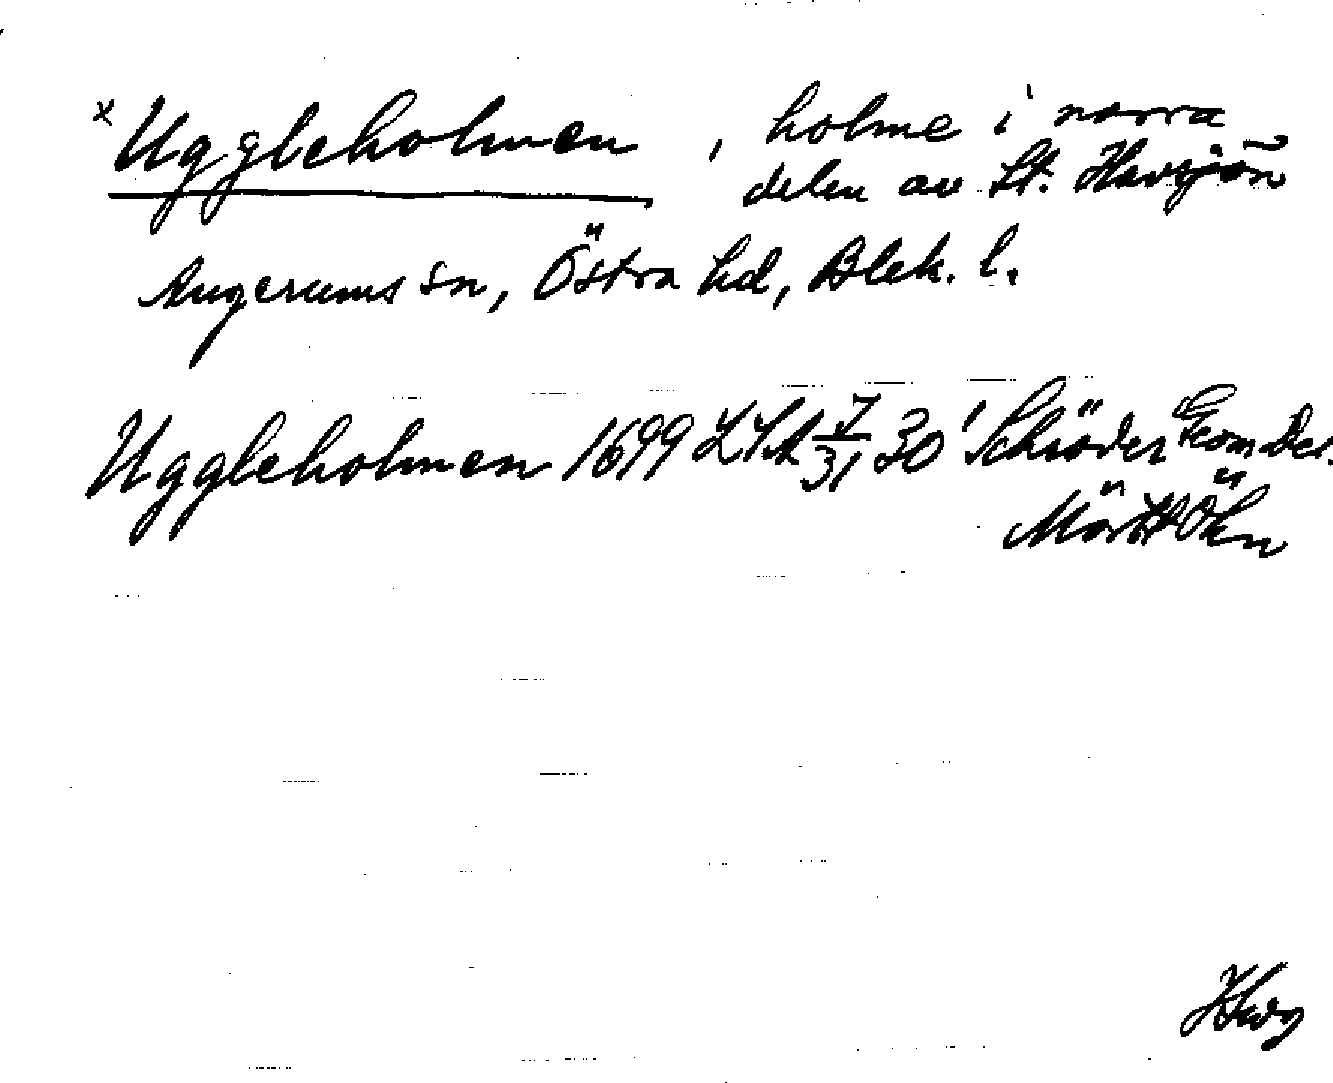 x Uggleholmen, holme i norra
delen av St. Havsjön
Augerums sn, Östra hd, Blek. l.
Uggleholmen 1699 LSA 7/31 30' Schröder Geom Des.
Mört Ökn